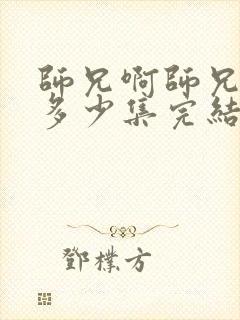 師兄啊師兄
多少集完結
鄧樸方